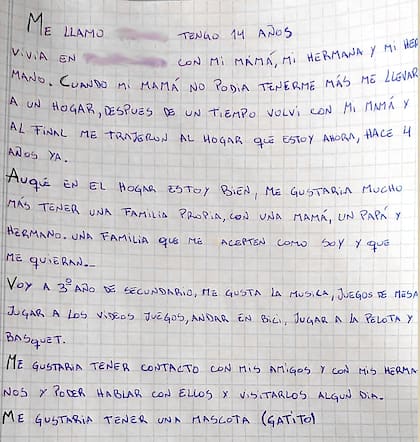 ME LLAMO TENGO 14 AÑOS
VIVIA EN CON MI MAMÁ, MI HERMANA Y MI HER
MANO. CUANDO MI MAMÁ NO PODIA TENERME MÁS ME LLEVAR
A UN HOGAR, DESPUES DE UN TIEMPO VOLVI CON MI MAMÁ Y
AL FINAL ME TRAJERON AL HOGAR QUE ESTOY AHORA, HACE 4
AÑOS YA.
AUQÉ EN EL HOGAR ESTOY BIEN, ME GUSTARIA MUCHO
MÁS TENER UNA FAMILIA PROPIA, CON UNA MAMÁ, UN PAPÁ Y
HERMANO. UNA FAMILIA QUE ME ACEPTEN COMO SOY Y QUE
ME QUIERAN._
VOY A 3º AÑO DE SECUNDARIO, ME GUSTA LA MUSICA, JUEGOS DE MESA
JUGAR A LOS VIDEOS JUEGOS, ANDAR EN BICI, JUGAR A LA PELOTA Y
BASQUET.
ME GUSTARIA TENER CONTACTO CON MIS AMIGOS Y CON MIS HERMA
NOS Y PODER HABLAR CON ELLOS Y VISITARLOS ALGUN DIA.
ME GUSTARIA TENER UNA MASCOTA (GATITO)